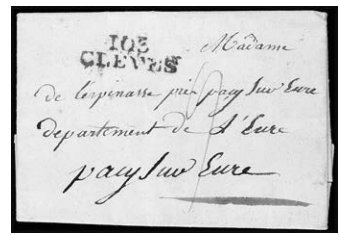 103
CLEVES
Madame
de lespinasse près pacy Sur Eure
departement de L'Eure
pacy Sur Eure